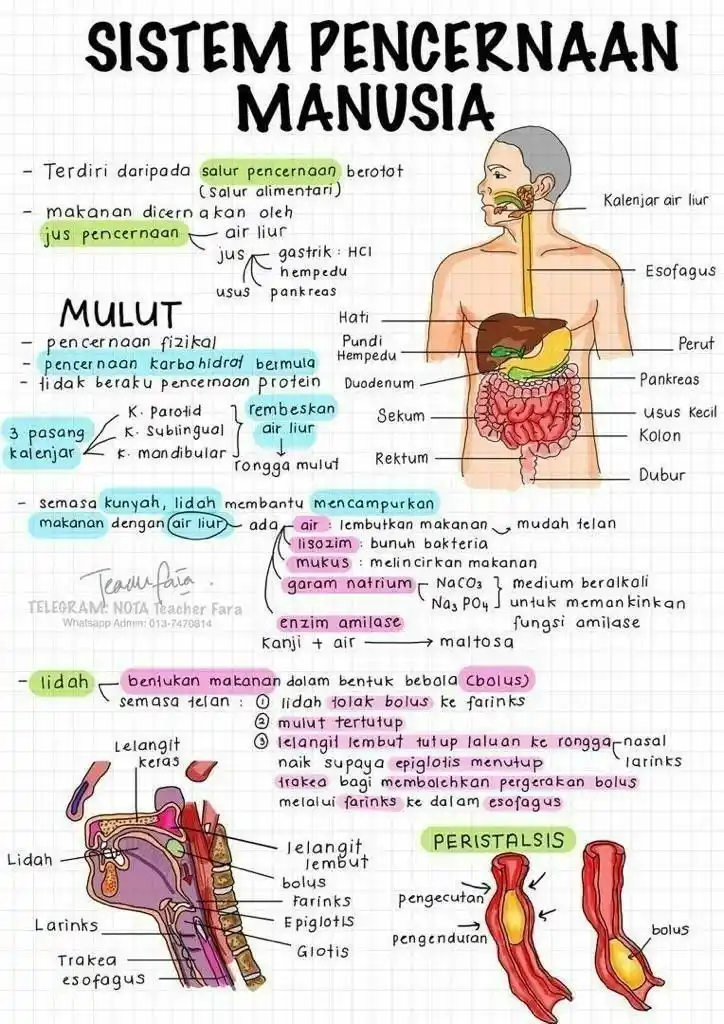 SISTEM PENCERNAAN
MANUSIA
- Terdiri daripada salur pencernaan berotot
(salur alimentari)
- makanan dicernakan oleh
jus pencernaan
air liur
jus
gastrik : HCl
hempedu
usus
pankreas
Kalenjar air liur
Esofagus
Hati
Pundi
Hempedu
Duodenum
Sekum
Rektum
Perut
Pankreas
Usus Kecil
Kolon
Dubur
MULUT
- pencernaan fizikal
- pencernaan karbohidrat bermula
- tidak beraku pencernaan protein
3 pasang
kalenjar
K. Parotid
K. Sublingual
K. mandibular
rembeskan
air liur
rongga mulut
- semasa kunyah, lidah membantu mencampurkan
makanan dengan air liur
ada
air : lembutkan makanan → mudah telan
lisozim : bunuh bakteria
mukus : melincirkan makanan
garam natrium
NaCO3
Na3PO4
medium beralkali
untuk memankinkan
fungsi amilase
enzim amilase
Kanji + air → maltosa
Teacher Fara.
TELEGRAM: NOTA Teacher Fara
Whatsapp Admin: 013-7470814
- lidah
bentukan makanan dalam bentuk bebola (bolus)
semasa telan : ① lidah tolak bolus ke farinks
② mulut tertutup
③ lelangit lembut tutup laluan ke rongga
nasal
larinks
naik supaya epiglotis menutup
trakea bagi membolehkan pergerakan bolus
melalui farinks ke dalam esofagus
Lelangit
keras
Lidah
Larinks
Trakea
esofagus
lelangit
lembut
bolus
Farinks
Epiglotis
Glotis
PERISTALSIS
pengecutan
pengenduran
bolus